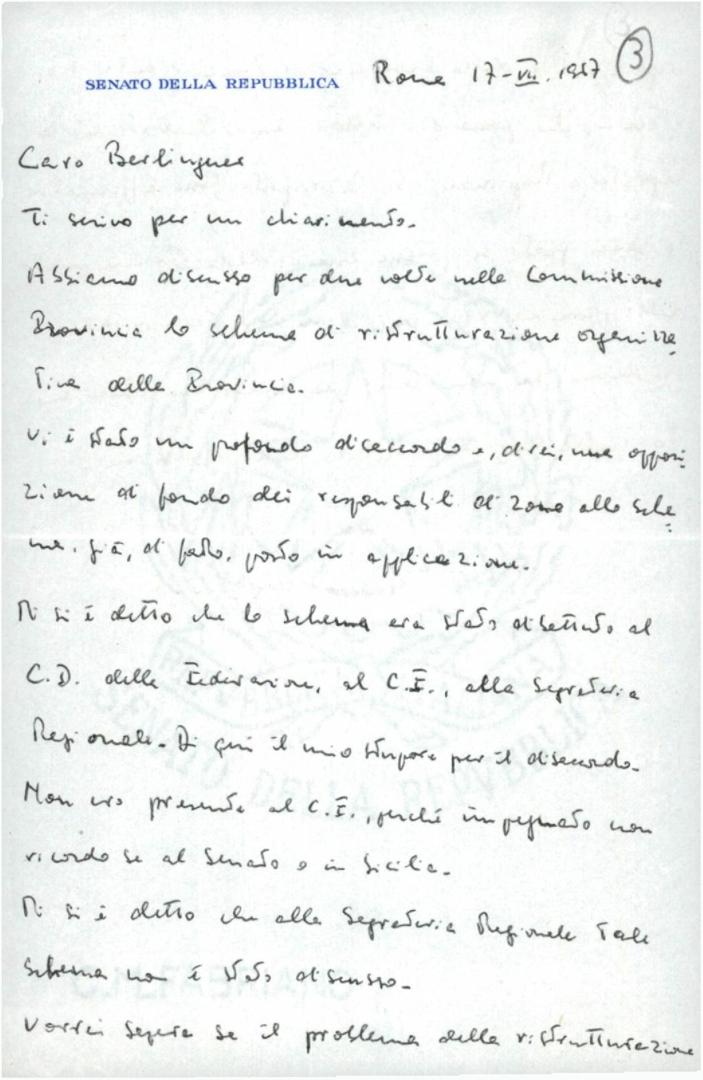 3
SENATO DELLA REPUBBLICA Roma 17-VII.1967
Caro Berlinguer
Ti scrivo per un chiarimento.
Abbiamo discusso per due volte nella Commissione
Provincia lo schema di ristrutturazione organizza
tiva della Provincia.
Vi è stato un profondo disaccordo e, direi, una opposi
zione di fondo dei responsabili di zona allo sche
ma, già, di fatto, posto in applicazione.
Mi si è detto che lo schema era stato dibattuto al
C.D. della Federazione, al C.F., alla Segreteria
Regionale. Di qui il mio stupore per il disaccordo.
Non ero presente al C.F., perché impegnato non
ricordo se al Senato o in Sicilia.
Mi si è detto che alla Segreteria Regionale tale
schema non è stato discusso.
Vorrei sapere se il problema della ristrutturazione
SENATO DELLA REPVBBLICA
REPVBBLICA ITALIANA